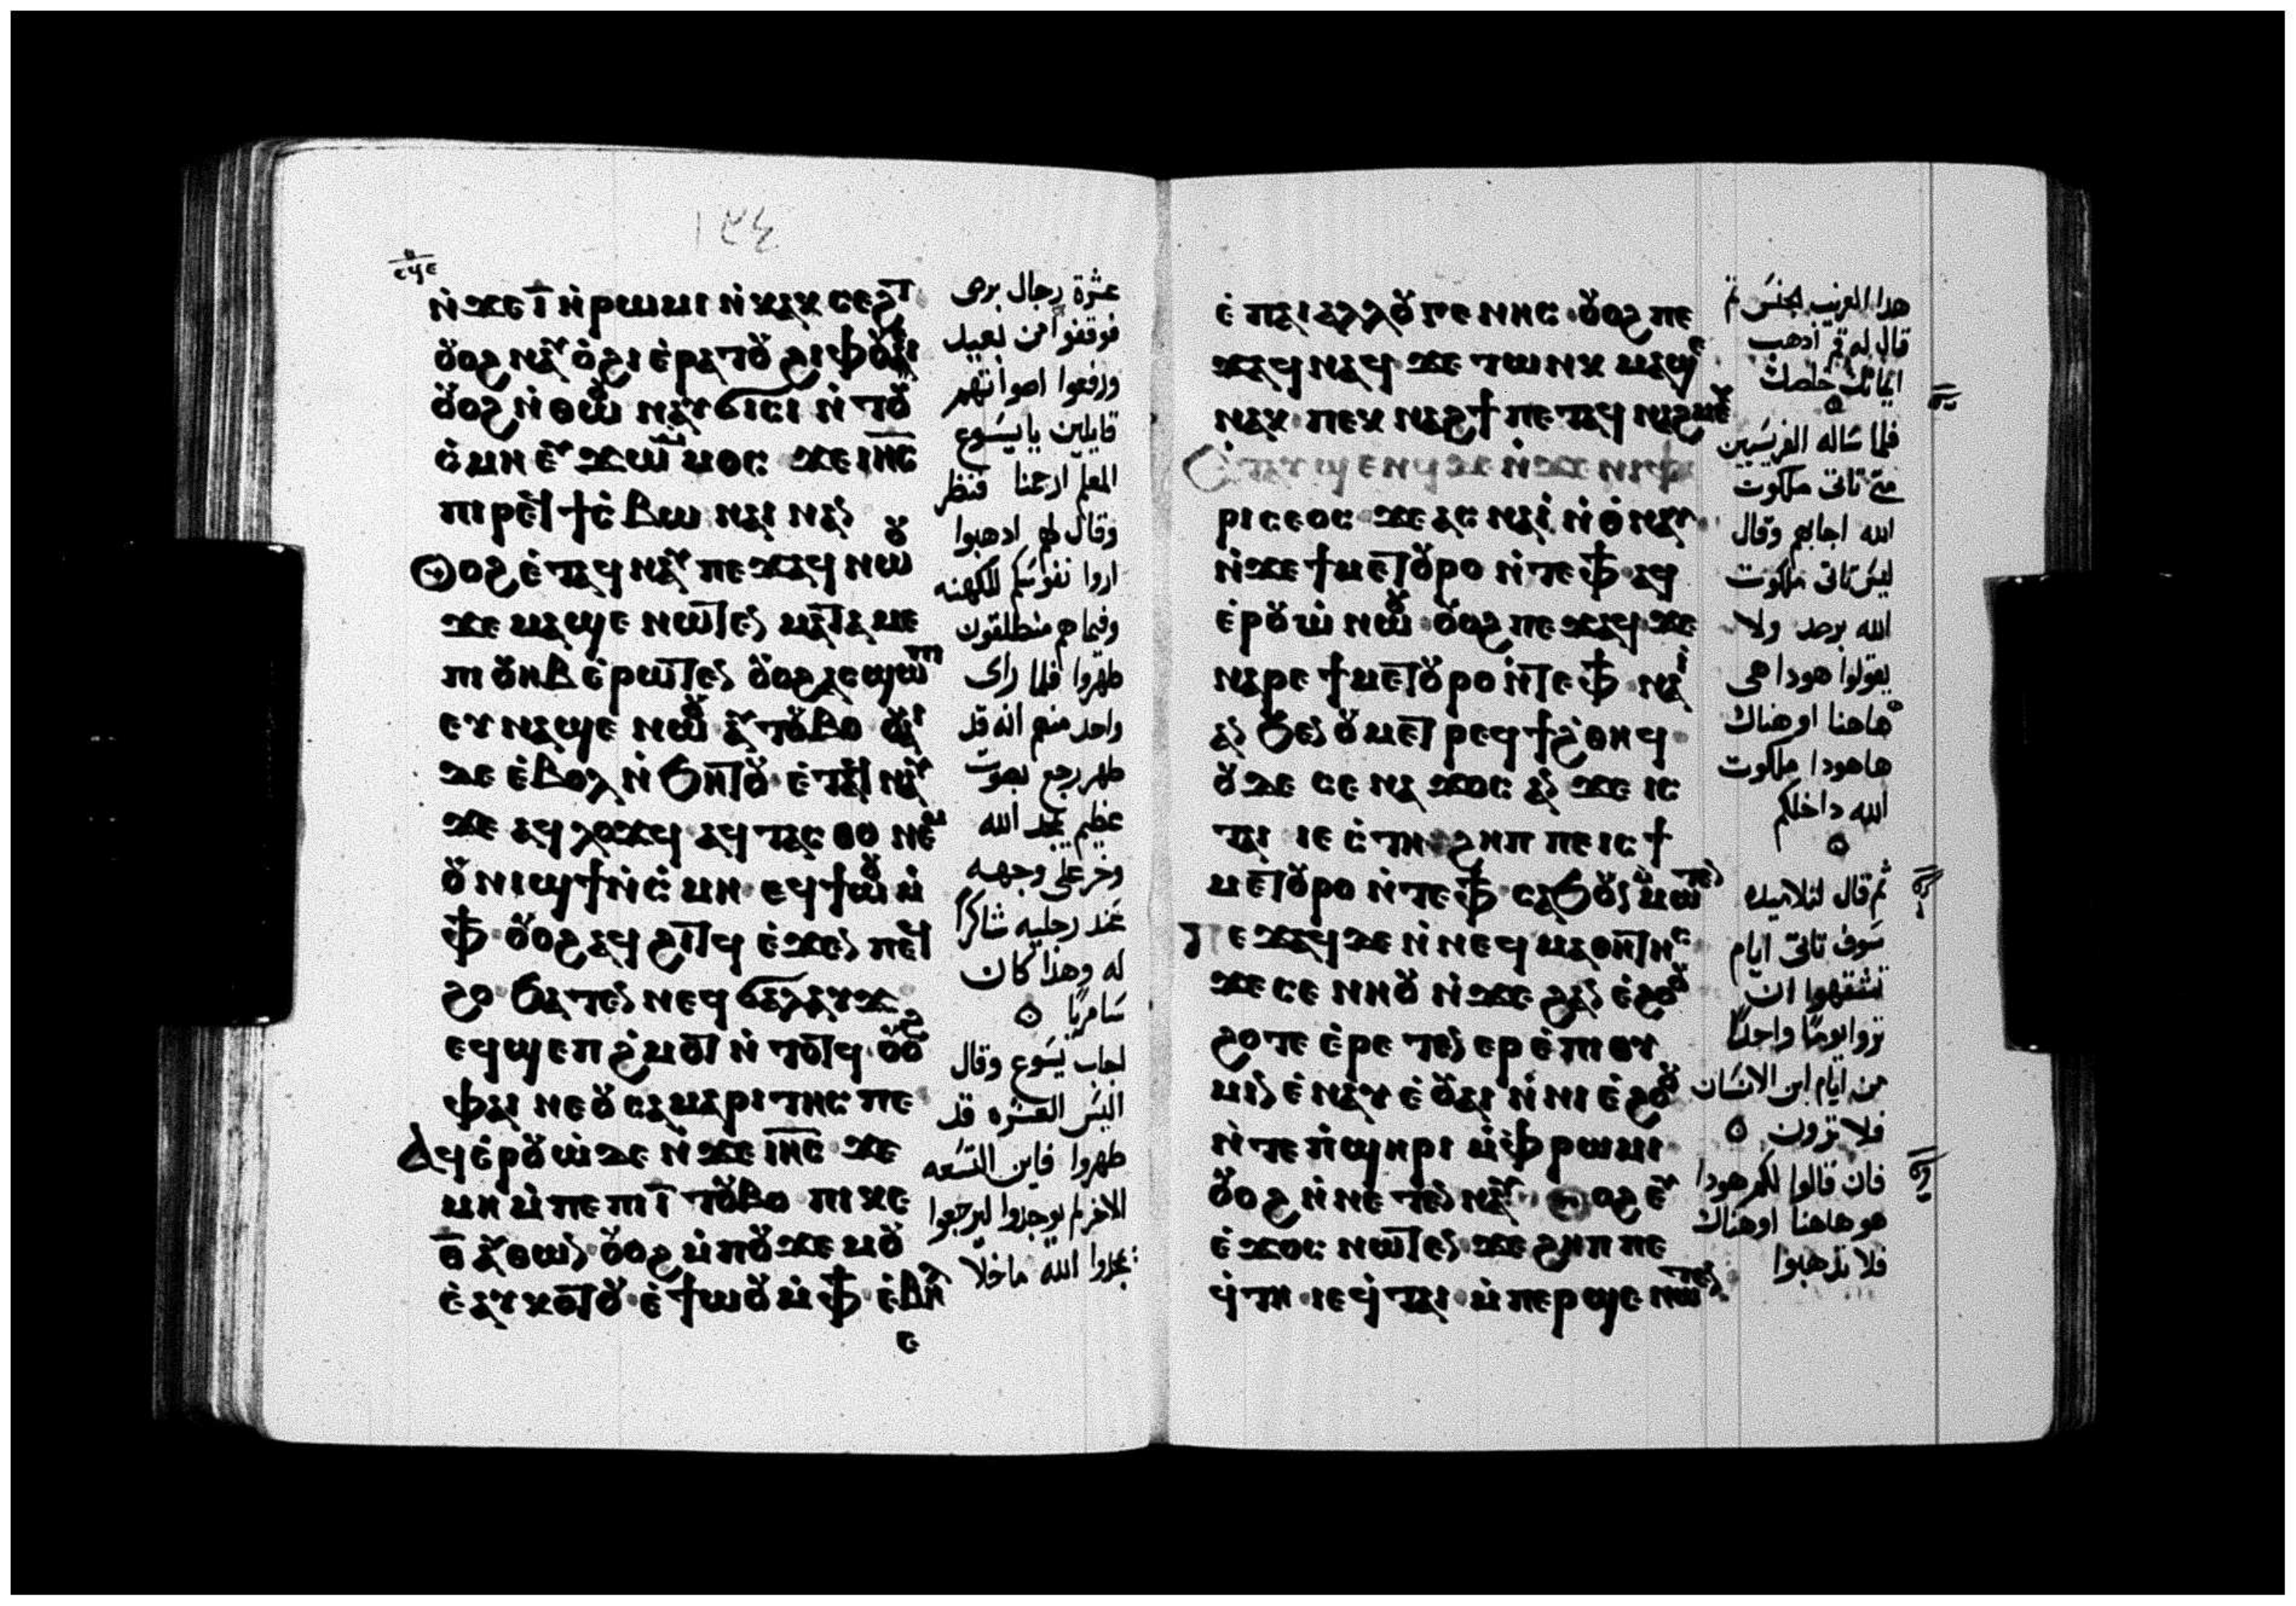 ١٢٤
ⲛ̀ϫⲉ ⲓ̅ ⲛ̀ⲣⲱⲙⲓ ⲛ̀ⲕⲁⲕⲥⲉϩⲧ
ⲟⲩⲟϩ ⲛⲁⲩⲟ̀ϩⲓ ⲉ̀ⲣⲁⲧⲟⲩ ϩⲓⲫⲟⲩⲉⲓ
ⲟⲩⲟϩ ⲛ̀ⲑⲱⲟⲩ ⲛⲁⲩϭⲓⲥⲓ ⲛ̀ⲧⲟⲩ
ⲥ̀ⲙⲏ ⲉⲩϫⲱ ⲙ̀ⲙⲟⲥ ϫⲉ ⲓⲏ̅ⲥ̅
ⲡⲓⲣⲉϥϯⲥ̀ⲃⲱ ⲛⲁⲓ ⲛⲁⲛ
ⲟⲩⲟϩ ⲉ̀ⲧⲁϥⲛⲁⲩ ⲡⲉϫⲁϥ ⲛⲱⲟⲩ
ϫⲉ ⲙⲁϣⲉ ⲛⲱⲧⲉⲛ ⲙⲁⲧⲁⲙⲉ
ⲡⲓⲟⲩⲏⲃ ⲉ̀ⲣⲱⲧⲉⲛ ⲟⲩⲟϩ ⲁⲥϣⲱⲡⲓ
ⲉⲩⲛⲁϣⲉ ⲛⲱⲟⲩ ⲁⲩⲧⲟⲩⲃⲟ ⲟⲩⲁⲓ
ⲇⲉ ⲉ̀ⲃⲟⲗ ⲛ̀ϧⲏⲧⲟⲩ ⲉ̀ⲧⲁϥⲛⲁⲩ
ϫⲉ ⲁϥⲗⲟϫϥ ⲁϥⲧⲁⲥⲑⲟ ⲛⲉⲙ
ⲟⲩⲛⲓϣϯ ⲛ̀ⲥ̀ⲙⲏ ⲉϥϯⲱⲟⲩ ⲙ̀
ⲫϯ ⲟⲩⲟϩ ⲁϥϩⲓⲧϥ ⲉ̀ϫⲉⲛ ⲡⲉϥ
ϩⲟ ϧⲁⲧⲉⲛ ⲛⲉϥϭⲁⲗⲁⲩϫ
ⲉϥϣⲉⲡϩ̀ⲙⲟⲧ ⲛ̀ⲧⲟⲧϥ ⲟⲩⲟϩ
ⲫⲁⲓ ⲛⲉ ⲟⲩⲥⲁⲙⲁⲣⲓⲧⲏⲥ ⲡⲉ
Ⲁϥⲉ̀ⲣⲟⲩⲱ̀ ⲇⲉ ⲛ̀ϫⲉ ⲓⲏ̅ⲥ̅ ϫⲉ
ⲙⲏ ⲙ̀ⲡⲉ ⲡⲓⲓ̅ ⲧⲟⲩⲃⲟ ⲡⲓⲕⲉ
ⲑ̅ ⲁⲩⲑⲱⲛ ⲟⲩⲟϩ ⲙ̀ⲡⲟⲩϫⲉⲙⲟⲩ
ⲉ̀ⲁⲩⲕⲟⲧⲟⲩ ⲉ̀ϯⲱⲟⲩ ⲙ̀ⲫϯ ⲉ̀ⲃⲏⲗ
ⲉ
عشرة رجال برص
فوقفوا من بعيد
ورفعوا اصواتهم
قايلين يا يسوع
المعلم ارحمنا فنظر
وقال لهم ادهبوا
اروا نفوسكم للكهنه
وفيما هم منطلقون
طهروا فلما راى
واحد منهم انه قد
طهر رجع بصوت
عظيم يمجد الله
وخر على وجهه
عند رجليه شاكرًا
له وهذا كان
سامريًا
اجاب يسوع وقال
اليس العشره قد
طهروا فاين التسعه
الاخر لم يوجدوا ليرجعوا
يمجدوا الله ما خلا
ⲉ̀ⲡⲁⲓⲁⲗⲗⲟⲩⲅⲉⲛⲏⲥ ⲟⲩⲟϩ ⲡⲉ
ϫⲁϥ ⲛⲁϥ ϫⲉ ⲧⲱⲛⲕ ⲙⲁϣⲉ
ⲛⲁⲕ ⲡⲉⲕⲛⲁϩϯ ⲡⲉⲧⲁϥⲛⲁϩⲙⲉⲕ
Ⲉ̀ⲧⲁⲩϣⲉⲛϥ ⲇⲉ ⲛ̀ϫⲉ ⲛⲓⲫⲁ
ⲣⲓⲥⲉⲟⲥ ϫⲉ ⲁⲥⲛⲁⲓ̀ ⲛ̀ⲑⲛⲁⲩ
ⲛ̀ϫⲉ ϯⲙⲉⲧⲟⲩⲣⲟ ⲛ̀ⲧⲉ ⲫϯ ⲁϥ
ⲉ̀ⲣⲟⲩⲱ̀ ⲛⲱⲟⲩ ⲟⲩⲟϩ ⲡⲉϫⲁϥ ϫⲉ
ⲛⲁⲣⲉ ϯⲙⲉⲧⲟⲩⲣⲟ ⲛ̀ⲧⲉ ⲫϯ ⲛⲁⲓ̀
ⲁⲛ ϧⲉⲛ ⲟⲩⲙⲉⲧⲣⲉϥϯϩ̀ⲑⲏϥ
ⲟⲩⲇⲉ ⲥⲉⲛⲁϫⲟⲥ ⲁⲛ ϫⲉ ⲓⲥ
ⲧⲁⲓ ⲓⲉ ⲥ̀ⲧⲏ ϩⲏⲡⲡⲉ ⲓⲥ ϯ
ⲙⲉⲧⲟⲩⲣⲟ ⲛ̀ⲧⲉ ⲫϯ ⲥⲁϧⲟⲩⲛ ⲙ̀ⲙⲱⲧⲉⲛ
ⲡⲉϫⲁϥ ⲇⲉ ⲛ̀ⲛⲉϥⲙⲁⲑⲏⲧⲏⲥ
ϫⲉ ⲥⲉⲛⲏⲟⲩ ⲛ̀ϫⲉ ϩⲁⲛⲉ̀ϩⲟⲟⲩ
ϩⲟⲧⲉ ⲉ̀ⲣⲉⲧⲉⲛⲉⲣⲉ̀ⲡⲓⲑⲩ
ⲙⲓⲛ ⲉ̀ⲛⲁⲩ ⲉ̀ⲟⲩⲁⲓ ⲛ̀ⲛⲓⲉ̀ϩⲟⲟⲩ
ⲛ̀ⲧⲉ ⲡ̀ϣⲏⲣⲓ ⲙ̀ⲫⲣⲱⲙⲓ
ⲟⲩⲟϩ ⲛ̀ⲛⲉⲧⲉⲛⲛⲁⲩ ⲟⲩⲟϩ ⲉⲩ
ⲉ̀ϫⲟⲥ ⲛⲱⲧⲉⲛ ϫⲉ ϩⲏⲡⲡⲉ
ϥ̀ⲧⲏ ⲓⲉ ϥ̀ⲧⲁⲓ ⲙ̀ⲡⲉⲣϣⲉ ⲛⲱⲧⲉⲛ
هدا الغريب الجنس ثم
قال له قم اذهب
ايمانك خلصك
فلما ساله الفريسيين
متى تاتى ملكوت
الله اجابهم وقال
ليس تاتى ملكوت
الله برصد ولا
يقولوا هودا هى
هاهنا او هناك
هاهودا ملكوت
الله داخلكم
ثم قال لتلاميده
سوف تاتى ايام
تشتهوا ان
تروا يومًا واحدًا
من ايام ابن الانسان
فلا ترون
فان قالوا لكم هودا
هو هاهنا او هناك
فلا تذهبوا